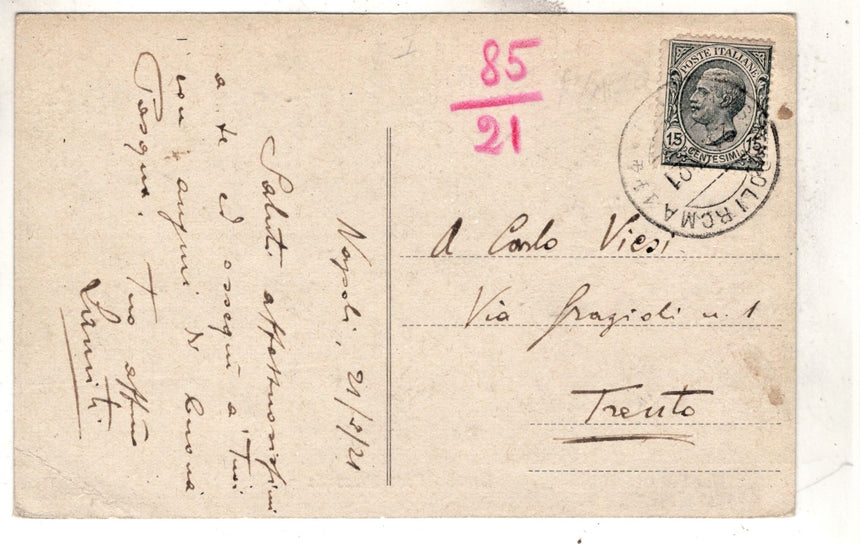 Napoli, 21/3/21
Saluti affettuosissimi
a te ed ossequi a' Tuoi
con auguri di buona
Pasqua. Tuo aff.mo
85
21
POSTE ITALIANE
15 CENTESIMI 15
NAPOLI ROMA
21
A Carlo Viesi
Via Grazioli n. 1
Trento